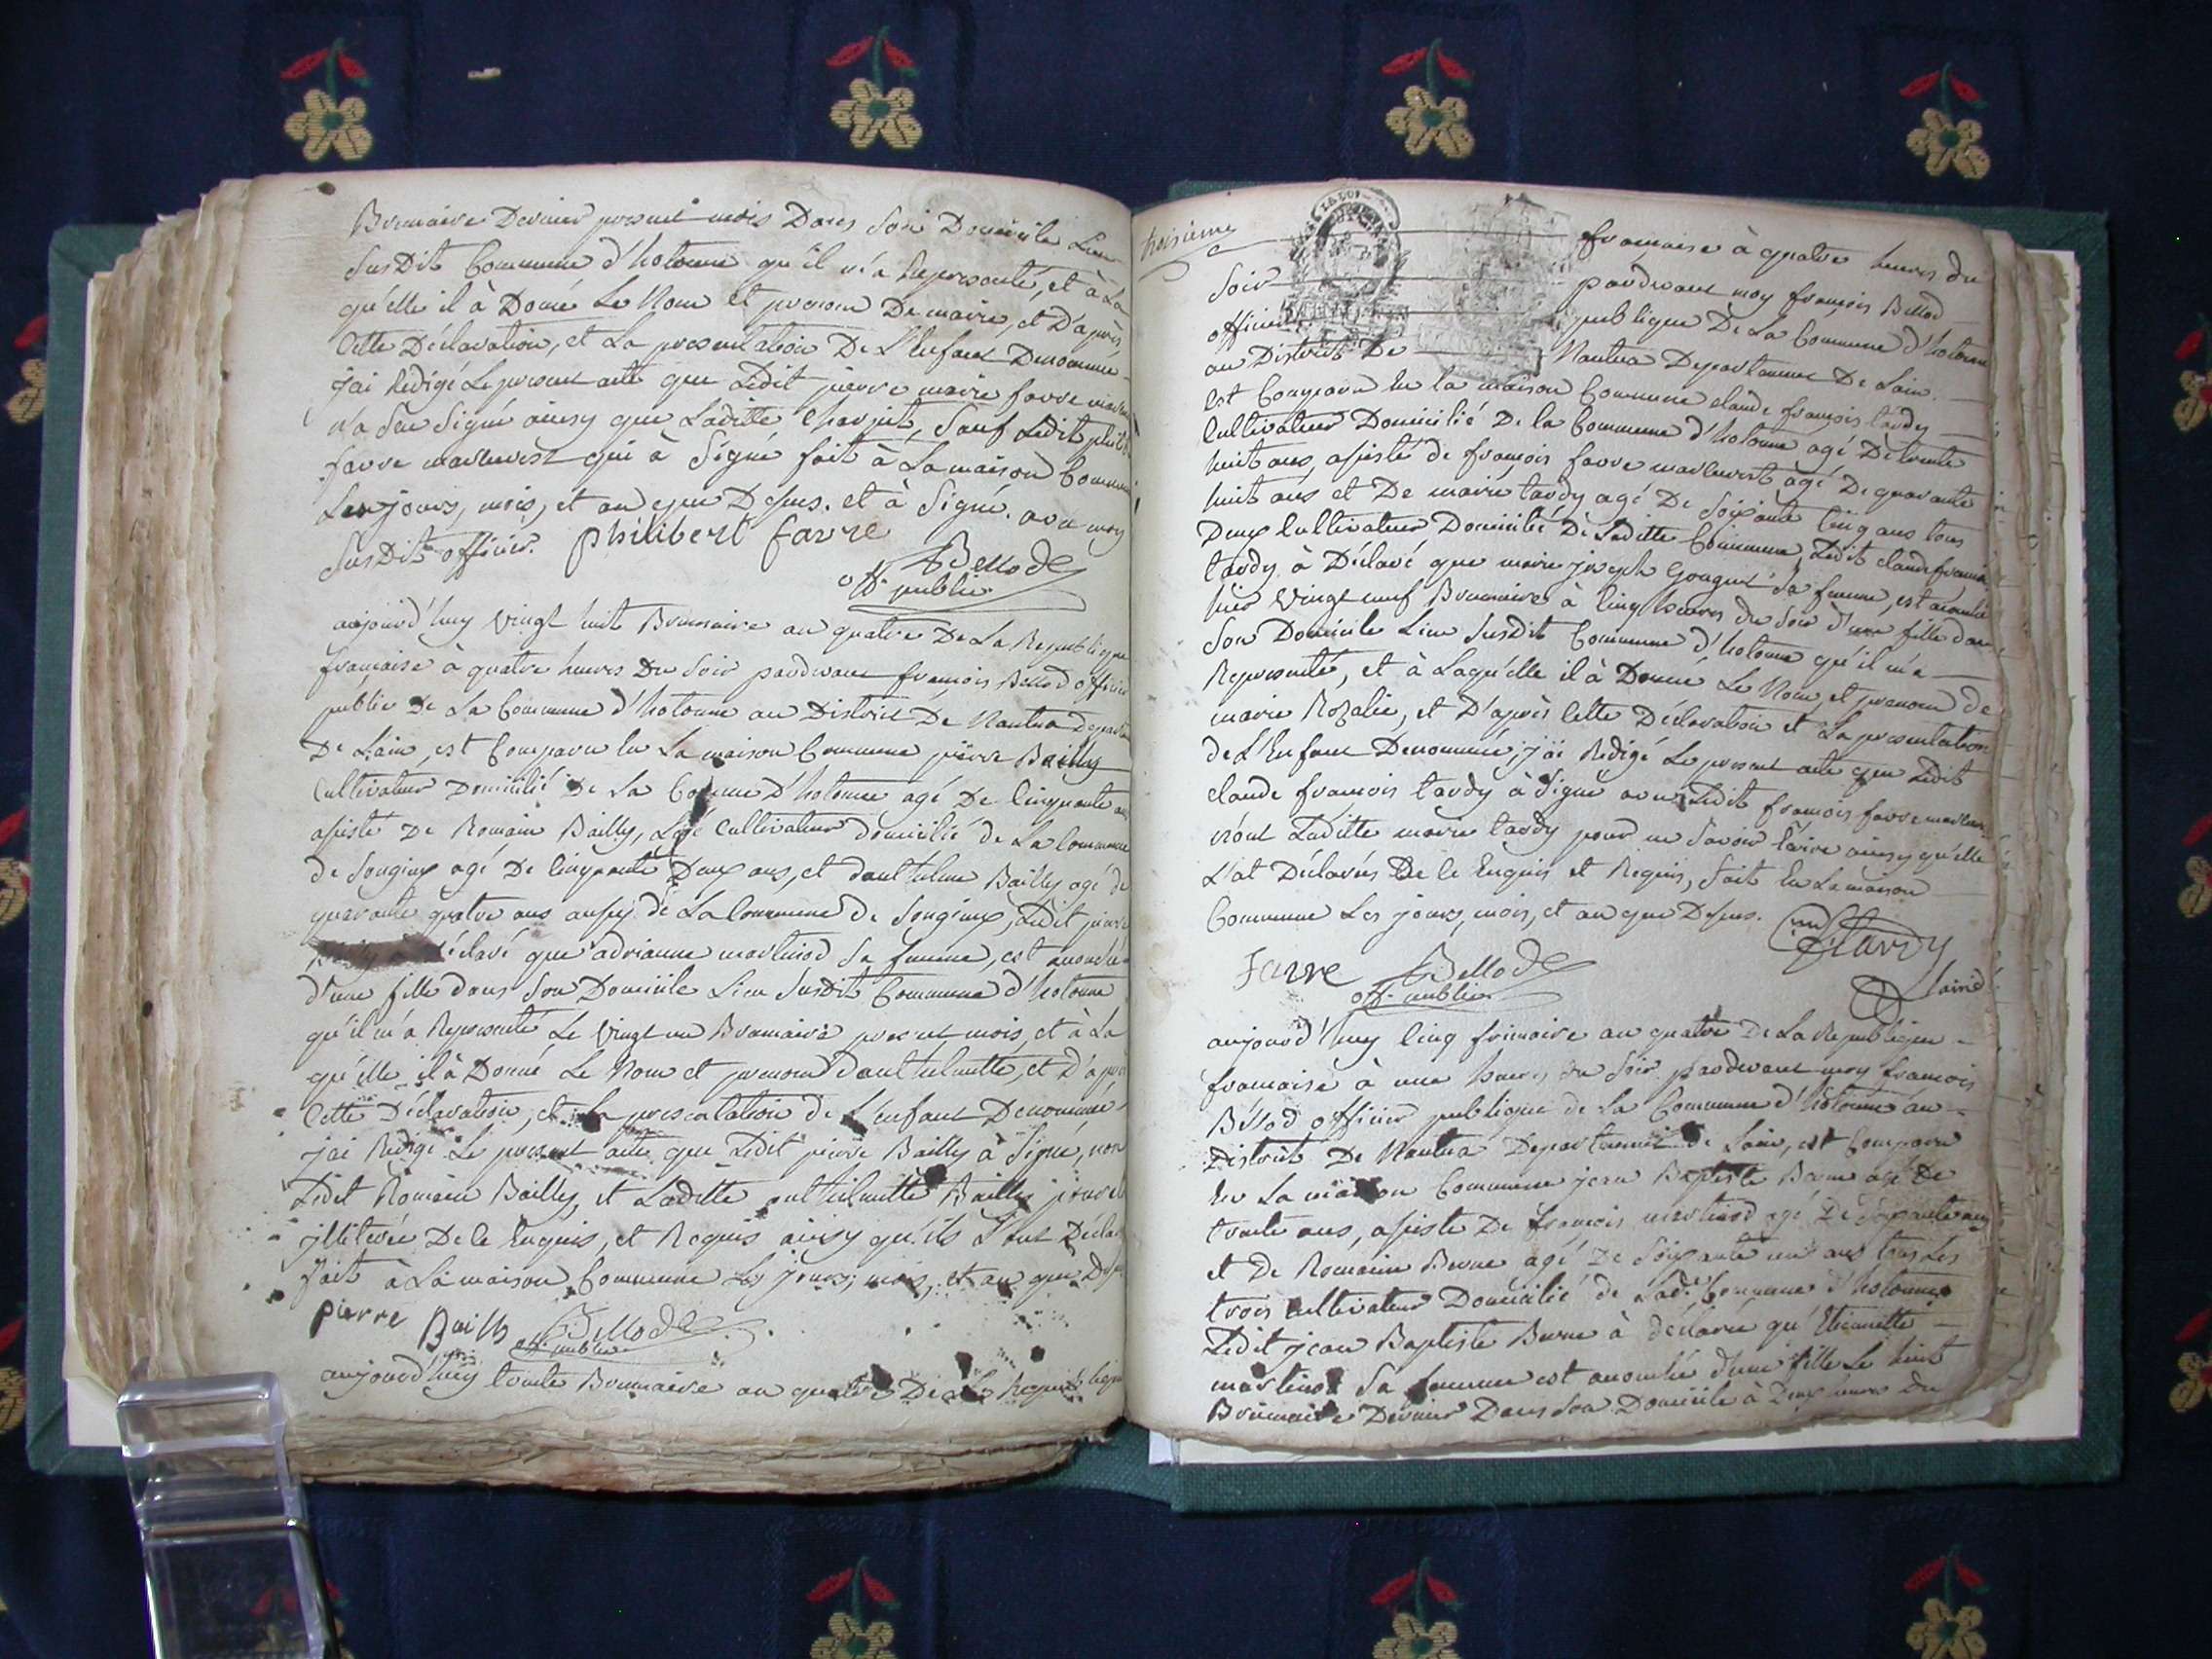 Brumaire Dernier present mois Dans Son Domicile Lieu
Susdit Commune d'hotonne qu'il m'a Representé, et à La
qu'elle il à Donné Le Nom et prenom De marie, et D'après
Cette Déclaration, et La presentation De L'Enfant Denommé
j'ai Redigé Le present acte que Ledit pierre marie favre
n'a Seu Signé ainsy que Laditte Charpit, Sauf Ledit
favre marlurest qui à Signé fait à La maison Commune
Les jours, mois, et an que Dessus. et à Signé. avec moy
Susdit officier. philibert favre
Bellod
off. public
aujourd'huy vingt huit Brumaire an quatre De La Republique
francaise à quatre heures Du Soir pardevant francois Bellod officier
public De La Commune d'hotonne au District De Nantua
De Lain, est Comparu En La maison Commune pierre Bailly
Cultivateur Domicilié De La d'hotonne agé De Cinquante
assisté De Romain Bailly, Cultivateur domicilié de La Commune
de Songieux agé De Cinquante Deux ans, et Bailly agé de
quarante quatre ans aussy de La Commune de Songieux, Ledit pierre
déclaré que adrianne martinod Sa femme, est accouchée
d'une fille dans Son Domicile Lieu Susdit Commune d'hotonne
qu'il m'a Representé Le Vingt un Brumaire present mois, et à La
qu'elle il à Donné Le Nom et prenom et D'après
Cette Déclaration, et La presentation de L'enfant Denommé
j'ai Redigé Le present acte que Ledit pierre Bailly à Signé, non
Ledit Romain Bailly, et Laditte Bailly
illiterée De Ce Enquis, et Requis ainsy qu'ils L'ont
fait à La maison Commune Les jours, mois, et an que
pierre Bailly Bellod
off. public
aujourd'huy trente Brumaire an quatre De La Republique
troisième
francaise à quatre heures du
Soir pardevant moy francois Bellod
officier publique De La Commune d'hotonne
au District De Nantua Departement De Lain.
est Comparu En la maison Commune claude francois tardy
Cultivateur Domicilié De la Commune d'hotonne agé De trente
huit ans, assisté de francois favre marlurest agé De quarante
huit ans et De marie tardy agé De Soixante Cinq ans tous
Deux Cultivateur Domicilié De Laditte Commune, Ledit claude francois
tardy à Déclaré que marie joseph Gouget Sa femme, est accouchée
hier Vingt neuf Brumaire à Cinq heures du Soir d'une fille dans
Son Domicile Lieu Susdit Commune d'hotonne qu'il m'a
Representé, et à Laqu'elle il à Donné Le Nom, et prenom de
marie Rozalie, et D'après Cette Déclaration et La presentation
de L'Enfant Denommé, j'ai Redigé Le present acte que Ledit
claude francois tardy à Signé avec Ledit francois favre
Laditte marie tardy pour ne Savoir Ecrire ainsy qu'elle
L'at Déclarés De Ce Enquis et Requis, fait En La maison
Commune Les jours, mois, et an que Dessus. Tardy
Favre Bellod
off. public
aujourd'huy Cinq frimaire an quatre De La Republique
francaise à une heures du Soir pardevant moy francois
Béllod officier publique de La Commune d'hotonne au
District De Nantua Departement De Lain, est Comparu
En La maison Commune jean Baptiste Berne agé De
trente ans, assisté De francois martinod agé De Soixante ans
et de Romain Berne agé De Soixante un ans tous Les
trois Cultivateur Domicilié de Lad. Commune d'hotonne
Ledit jean Baptiste Berne à déclaré qu'Etiennette
martinod Sa femme est accouchée d'une fille Le huit
Brumaire Dernier Dans Son Domicile à Deux heures du